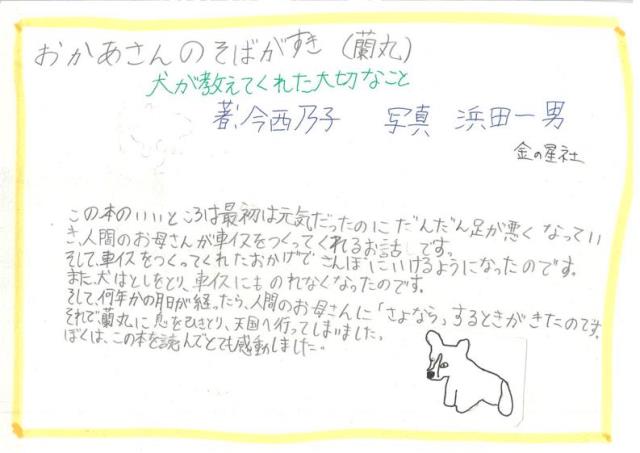 おかあさんのそばがすき（蘭丸）
犬が教えてくれた大切なこと
著:今西乃子　写真　浜田一男
金の星社
この本のいいところは最初は元気だったのにだんだん足が悪くなってい
き、人間のお母さんが車イスをつくってくれるお話しです。
そして、車イスをつくってくれたおかげでさんぽにいけるようになったのです。
また、犬はとしをとり、車イスにものれなくなったのです。
そして、何年かの月日が経ったら、人間のお母さんに「さよなら」するときがきたのです。
それで蘭丸に息をひきとり、天国へ行ってしまいました。
ぼくは、この本を読んでとても感動しました。